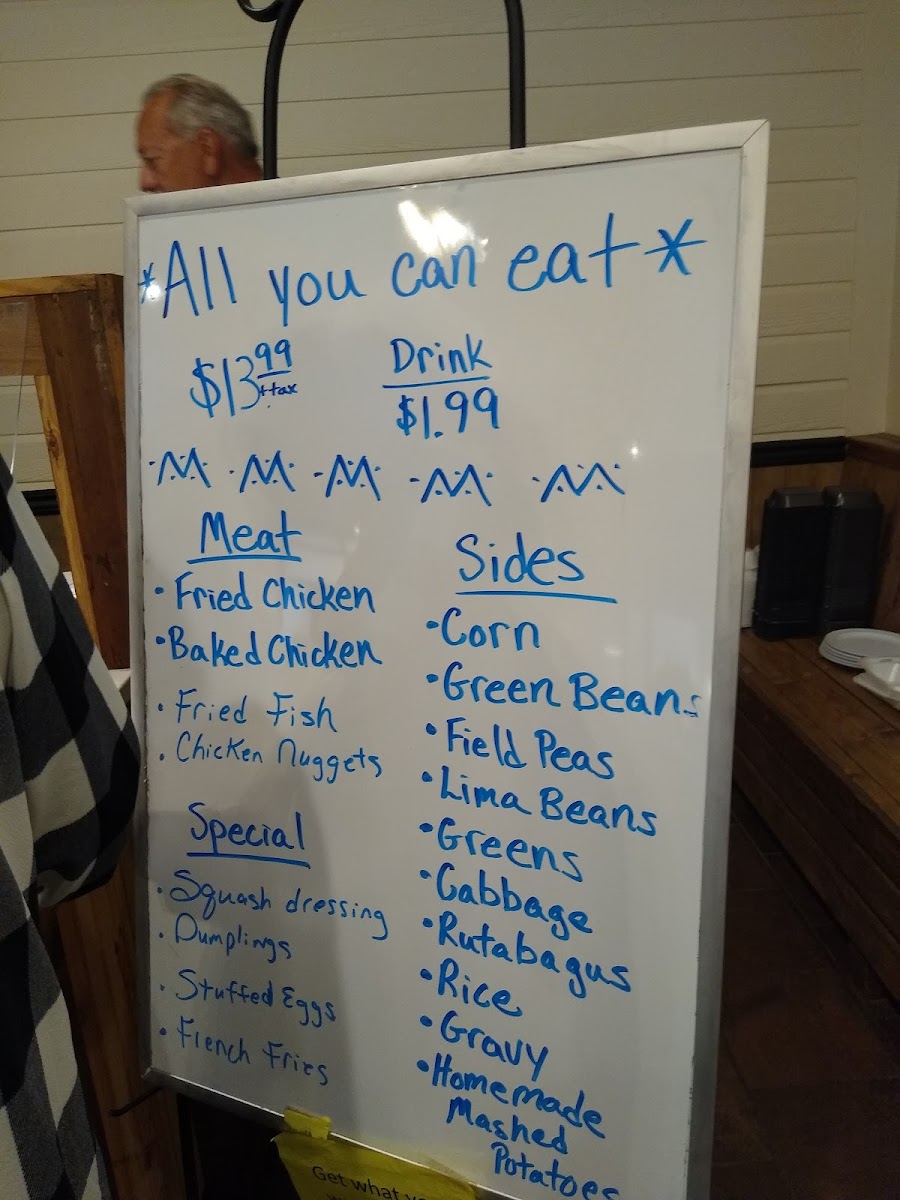 *All you can eat*
$13.99 +tax
Drink
$1.99
Meat
• Fried Chicken
• Baked Chicken
• Fried Fish
• Chicken Nuggets
Special
• Squash dressing
• Dumplings
• Stuffed Eggs
• French Fries
Sides
• Corn
• Green Beans
• Field Peas
• Lima Beans
• Greens
• Cabbage
• Rutabagus
• Rice
• Gravy
• Homemade
Mashed
Potatoes
Get what